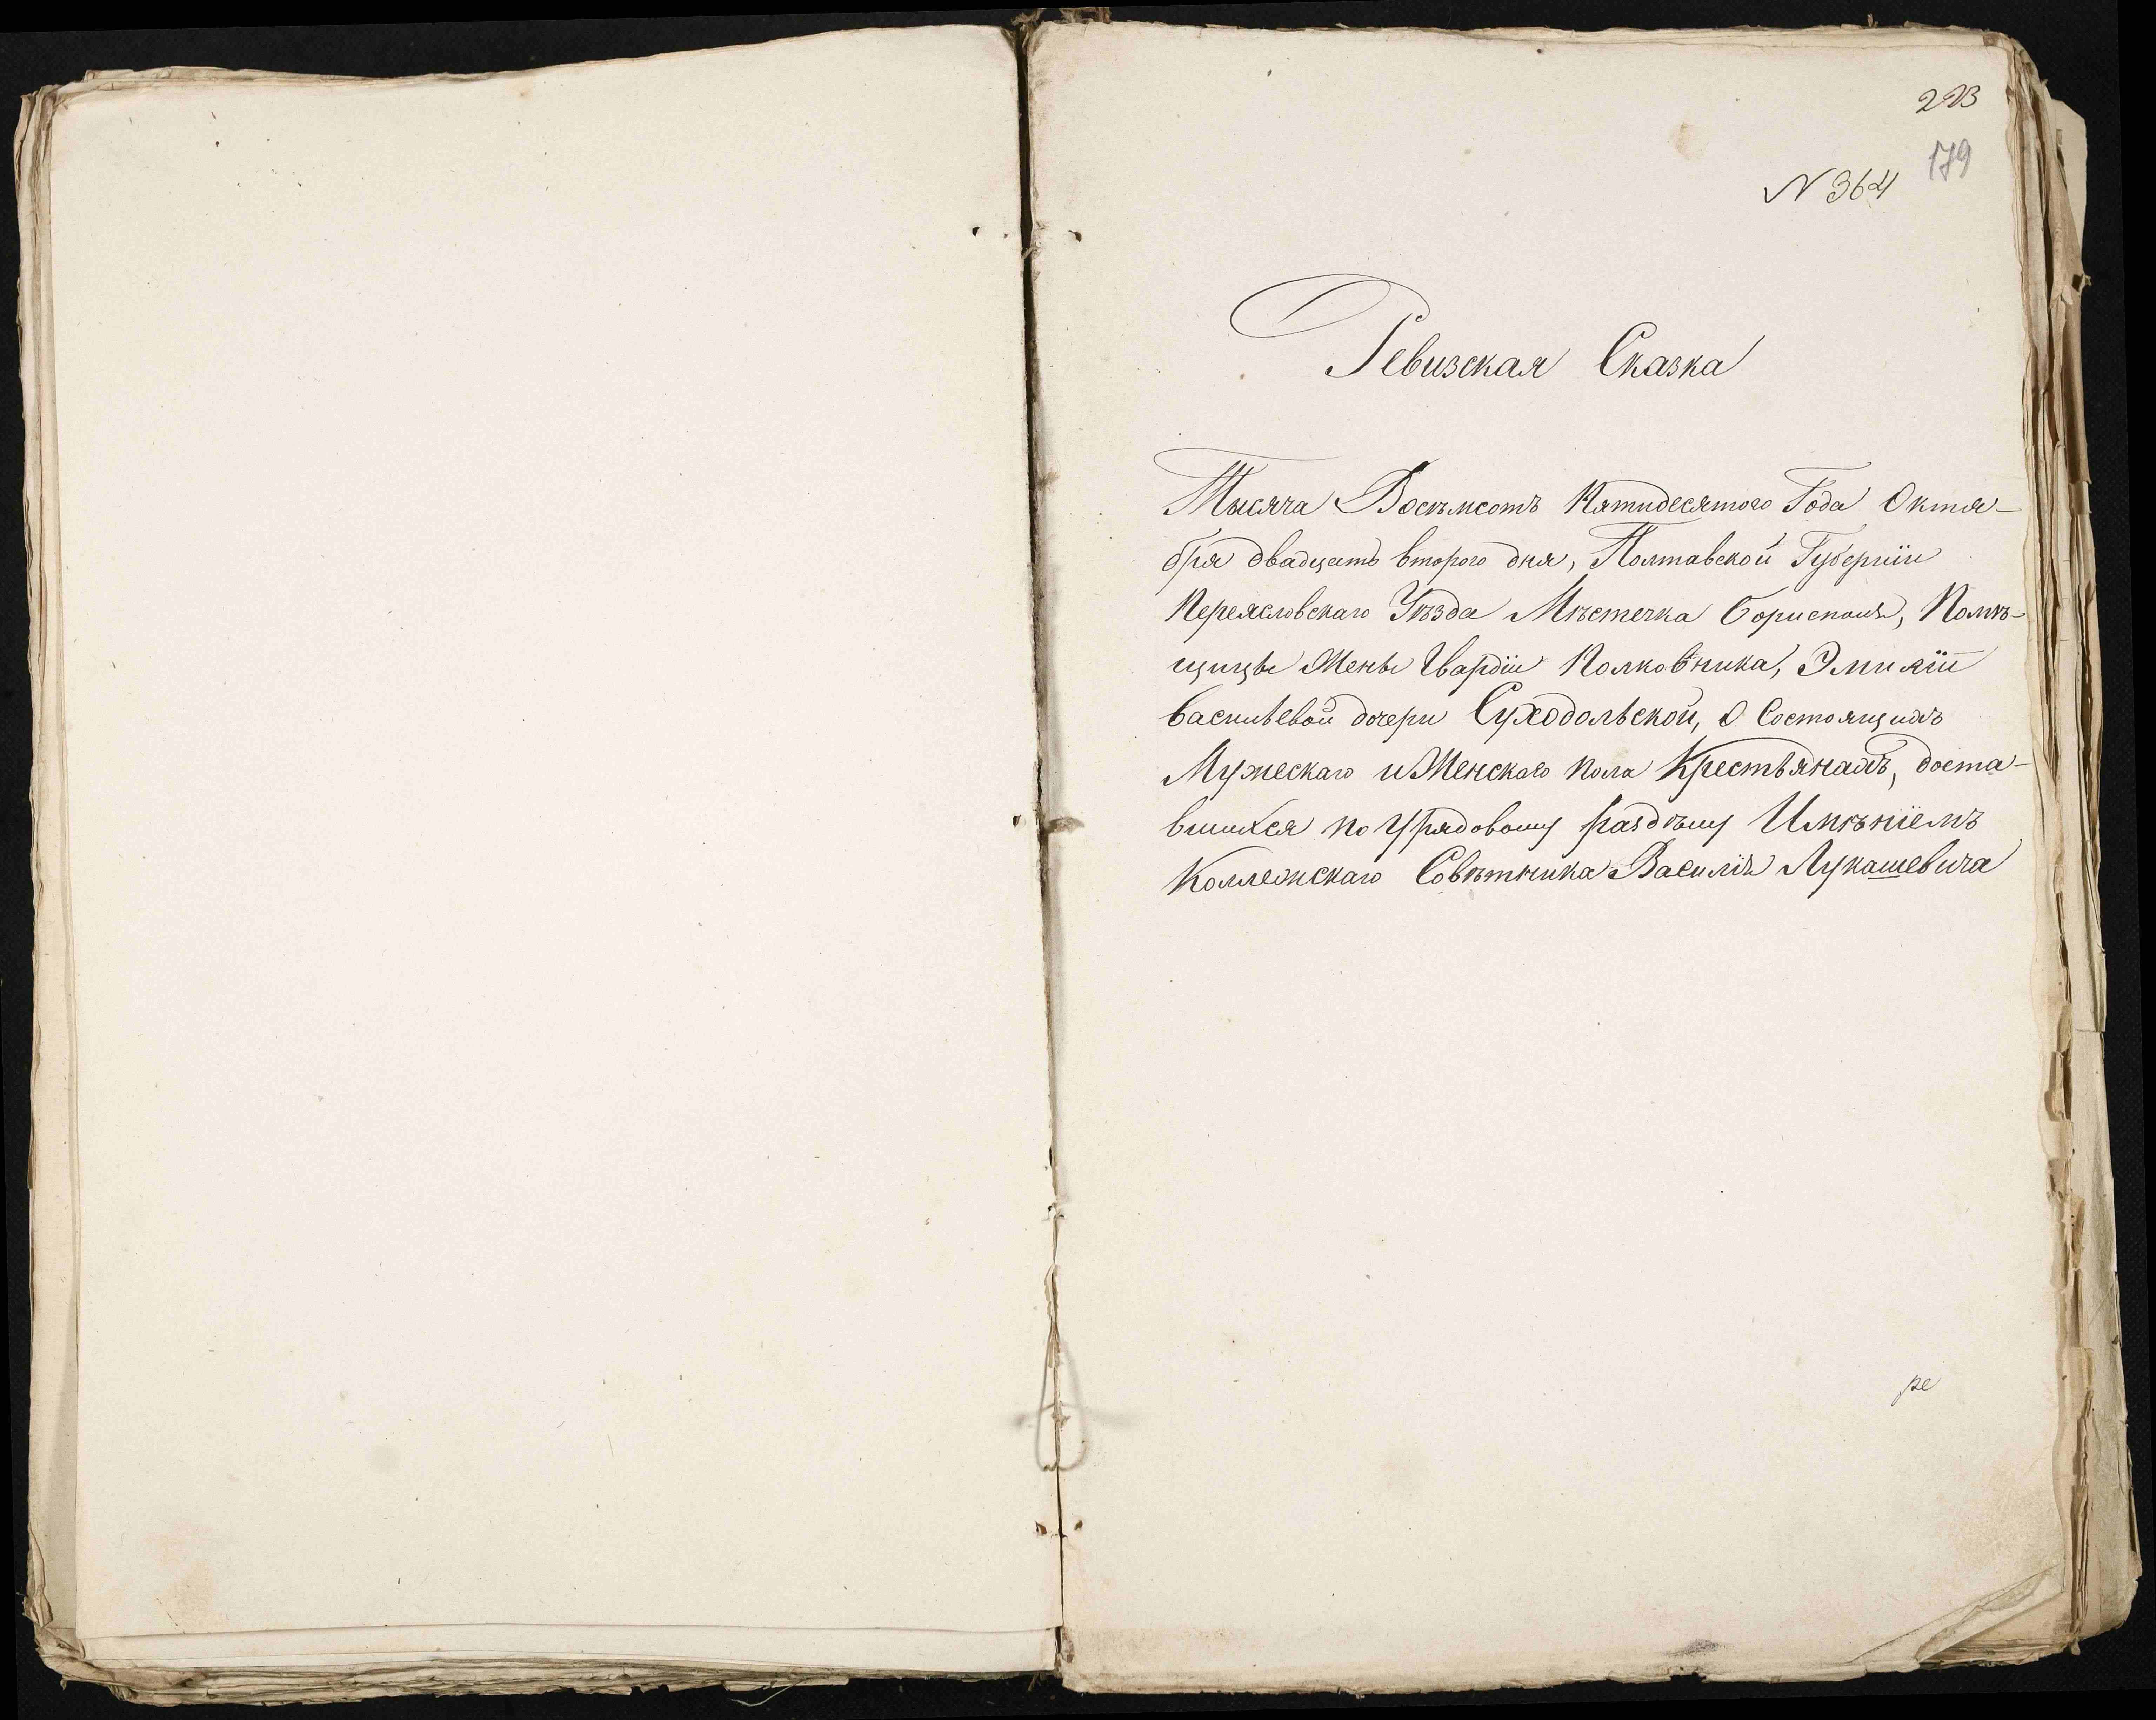 223
179
N 364
Ревизская Сказка
Тысяча Восѣмсотъ Пятидесятого Года Октя-
бря двадцать второго дня, Полтавской Губерніи
Переясловскаго Уѣзда Мѣстечка Борисполя, Помѣ-
щицы Жены Гвардіи Полковника, Эмиліи
Васильевой дочери Суходольской, О Состоящихъ
Мужескаго и Женскаго пола Крестьянахъ, доста-
вшихся по Урядовому раздѣлу Имѣніемъ
Коллежскаго Совѣтника Василія Лукашевича
ре